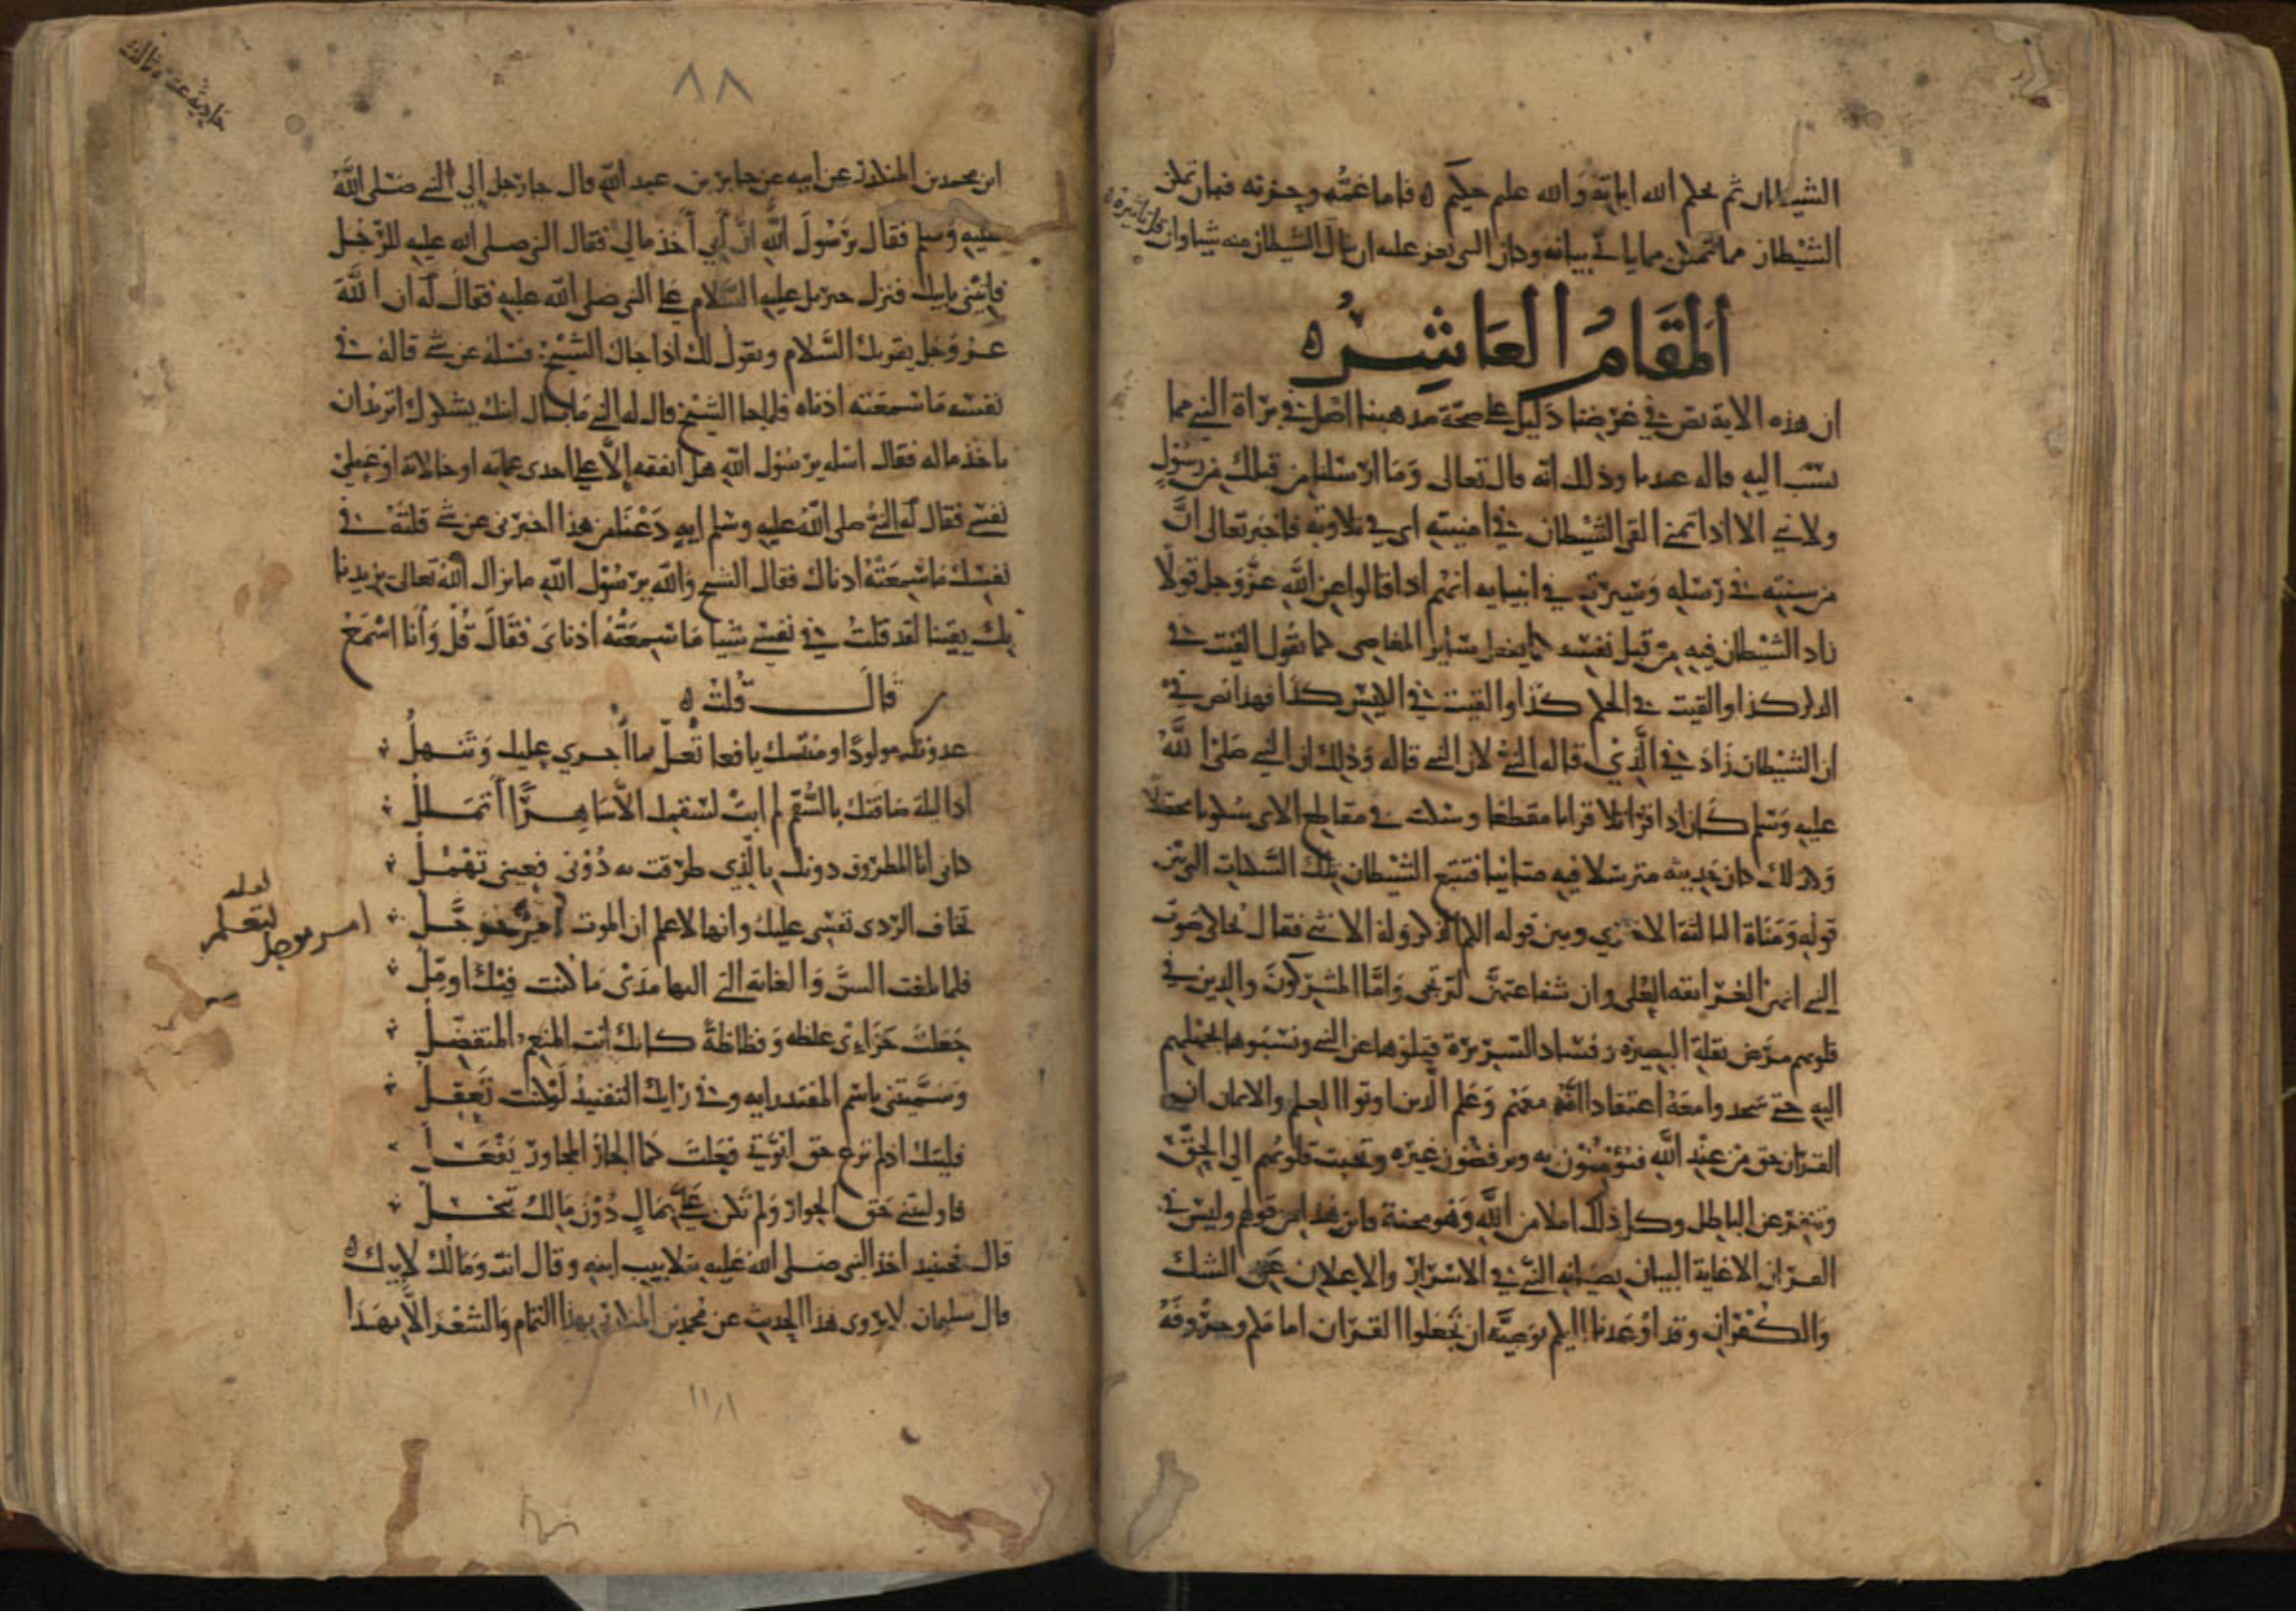 الشيطان ثم يحكم الله اياته والله عليم حكيم ه فاما غمه وحزنه فبان تمكن
الشيطان مما تمكن مما ياتي بيانه وكان النبي يعز عليه ان ينال الشيطان منه شيا وان قل تاثيره ه
المقام العاشر ه
ان هذه الاية نص في غرضنا دليل على صحة مذهبنا اصل في براة النبي مما
نسب اليه قاله عندنا وذلك انه قال تعالى وما ارسلنا من قبلك من رسول
ولا نبي الا اذا تمنى القى الشيطان في امنيته اي في تلاوته فاخبر تعالى ان
من سنته في رسله وسيرته في انبيايه انهم اذا قالوا عن الله عز وجل قولا
زاد الشيطان فيه من قبل نفسه كما يفعل ساير المعاصي كما تقول القيت في
الدار كذا والقيت في العكم كذا والقيت في الكيس كذا فهذا نص في
ان الشيطان زاد في الذي قاله النبي لا ان النبي قاله وذلك ان النبي صلى الله
عليه وسلم كان اذا قرا تلا قرانا مقطعا وسكت في مقاطع الاي سكوتا محصلا
وكذلك كان حديثه مترسلا فيه متانيا فتتبع الشيطان تلك السكتات التي بين
قوله ومناة الثالثة الاخرى وبين قوله الكم الذكر وله الانثى فقال يحاكي صوت
النبي انهن الغرانقة العلى وان شفاعتهن لترتجى واما المشركون والذين في
قلوبهم مرض لقلة البصيرة وفساد السريرة فتلوها عن النبي ونسبوها لجهلهم
اليه حتى سجدوا معه اعتقادا انه معهم وعلم الذين اوتوا العلم والايمان ان
القران حق من عند الله فيؤمنون به ويرفضون غيره وتخبت قلوبهم الى الحق
وتنفر عن الباطل وكل ذلك ابتلا من الله ومحنة فاين هذا من قولهم وليس في
القران الا غاية البيان بصيانة النبي في الاسرار والاعلان عن الشك
والكفران وقد اوعدنا اليكم توصية ان تجعلوا القران امامكم وحروفه
٨٨
ابن محمد بن المنكدر عن ابيه عن جابر بن عبد الله قال جا رجل الى النبي صلى الله
عليه وسلم فقال يرسول الله ان ابي اخذ مالي فقال النبي صلى الله عليه للرجل
فاتني بابيك فنزل جبريل عليه السلام على النبي صلى الله عليه فقال له ان الله
عز وجل يقريك السلام ويقول لك اذا جاك الشيخ فسله عن شي قاله في
نفسه ما سمعته اذناه فلما جا الشيخ قال له النبي ما بال ابنك يشكوك اتريد ان
ياخذ ماله فقال اسله يرسول الله هل انفقه الا على احدى عماته او خالاته او على
نفسي فقال له النبي صلى الله عليه وسلم ايه دعنا من هذا اخبرني عن شي قلته في
نفسك ما سمعته اذناك فقال الشيخ والله يرسول الله ما يزال الله تعالى يزيدنا
بك يقينا لقد قلت في نفسي شيا ما سمعته اذناى فقال قل وانا اسمع
قال قلت ه
غذوتك مولودا ومنتك يافعا تعل بما اجري عليك وتنهل
اذا ليلة ضافتك بالسقم لم ابت لسقمك الا ساهرا اتململ
كاني انا المطروق دونك بالذي طرقت به دوني فعيني تهمل
تخاف الردى نفسي عليك وانها لاعلم ان الموت
فلما بلغت السن والغاية التي اليها مدى ما كنت فيك اومل
جعلت جزاءى غلظة وفظاظة كانك انت المنعم المتفضل
وسميتني باسم المفند رايه وفي رايك التفنيد لو كنت تعقل
فليتك اذ لم ترع حق ابوتي فعلت كما الجار المجاور يفعل
فاوليتني حق الجوار ولم تكن علي بمال دون مالك تبخل
قال فحينيذ اخذ النبي صلى الله عليه بتلابيب ابنه وقال انت ومالك لابيك ه
قال سليمان لا يروى هذا الحديث عن محمد بن المنكدر بهذا التمام والشعر الا بهذا